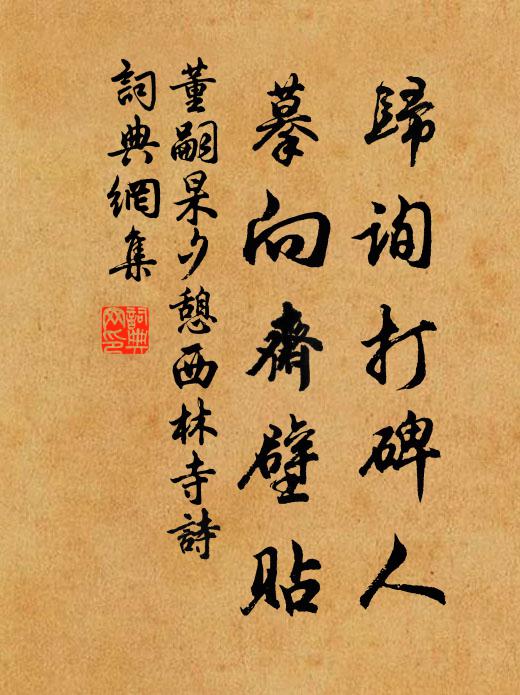 歸詢打碑人
摹向齋壁貼
董嗣杲夕憩西林寺詩
詞典網集
詞典網印